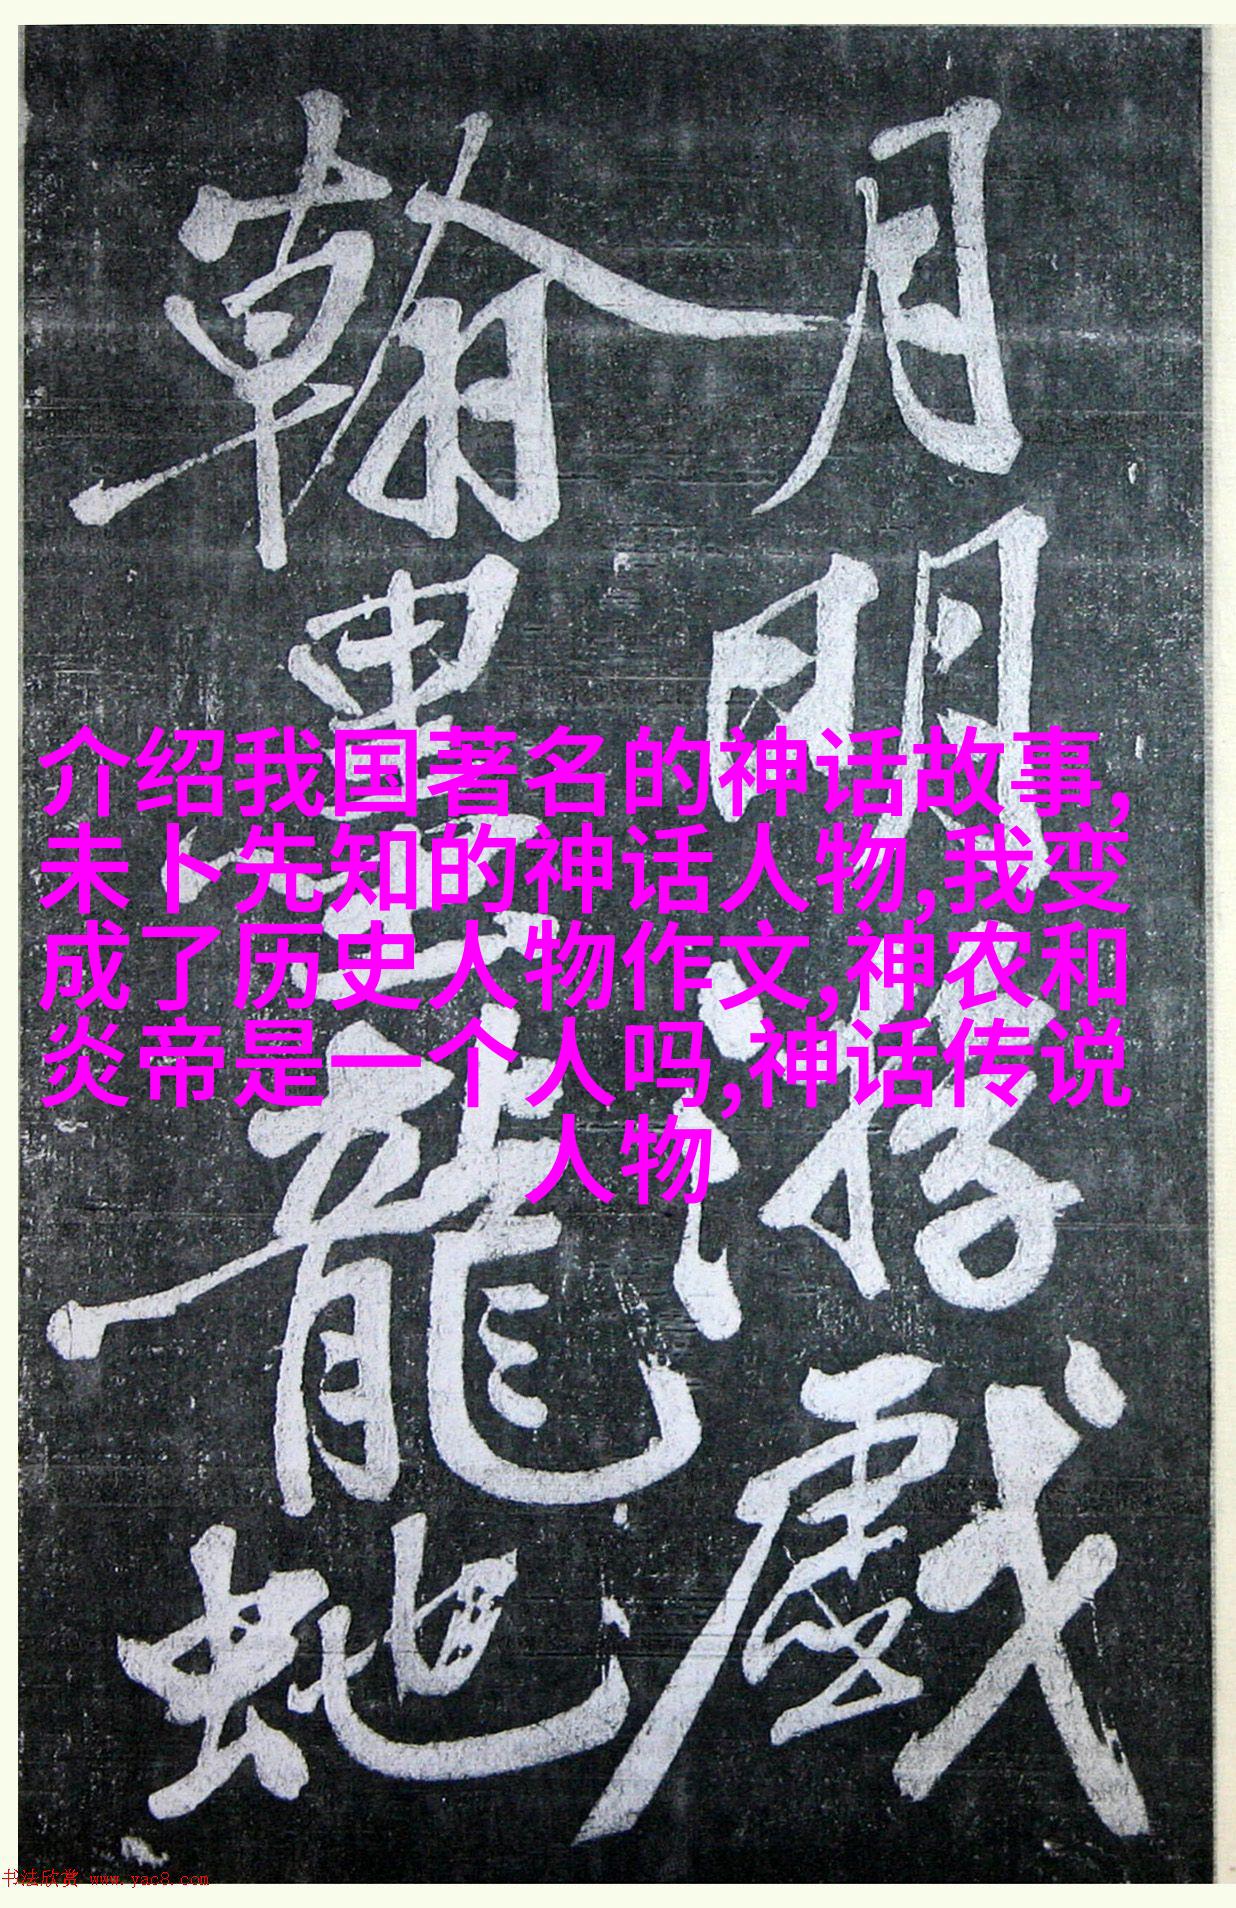 月明游戲
翰墨龍蛇
介绍我国著名的神话故事,
未卜先知的神话人物,我变
成了历史人物作文,神农和
炎帝是一个人吗,神话传说
人物
书法欣赏 www.yac8.com